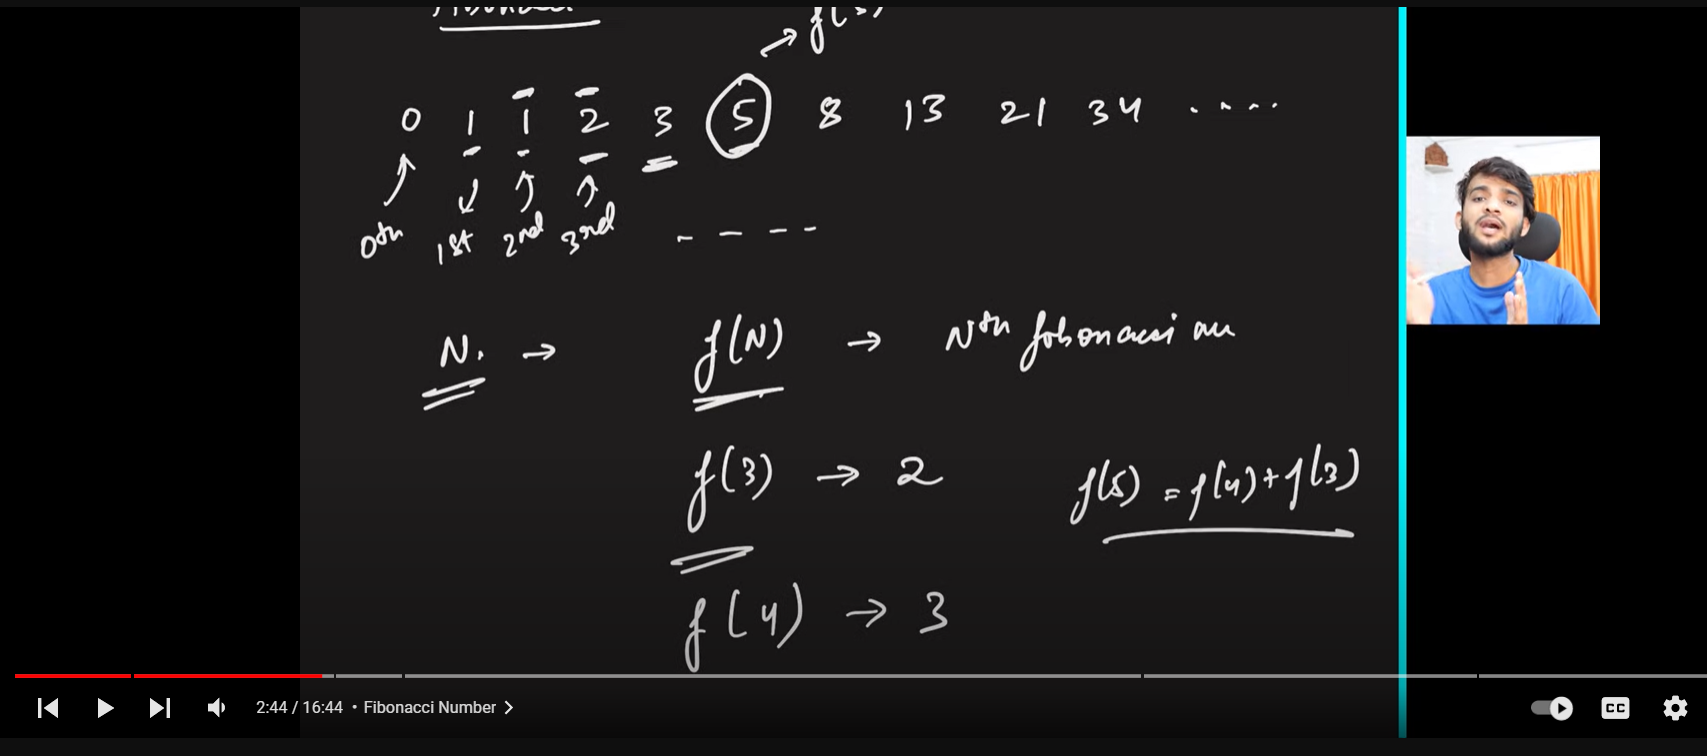 f(5)
0 1 1 2 3 5 8 13 21 34 ....
0th 1st 2nd 3rd ----
N. → f(N) → Nth
f(3) → 2
f(5) = f(4) + f(3)
f(4) → 3
2:44 / 16:44 • Fibonacci Number
CC